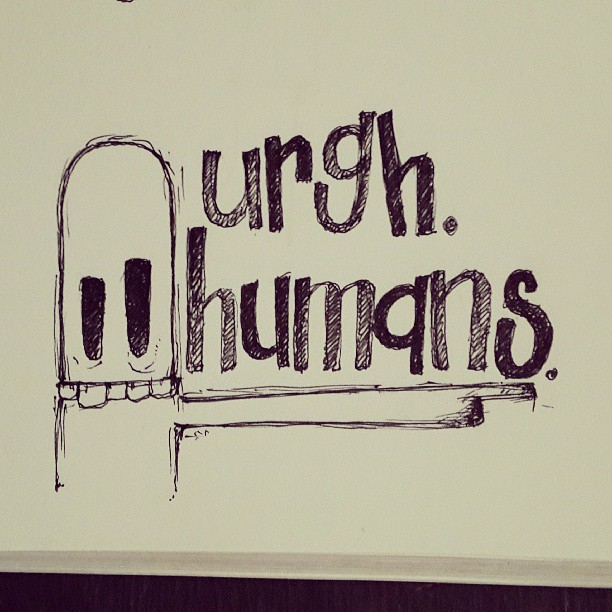 urgh.
humans.